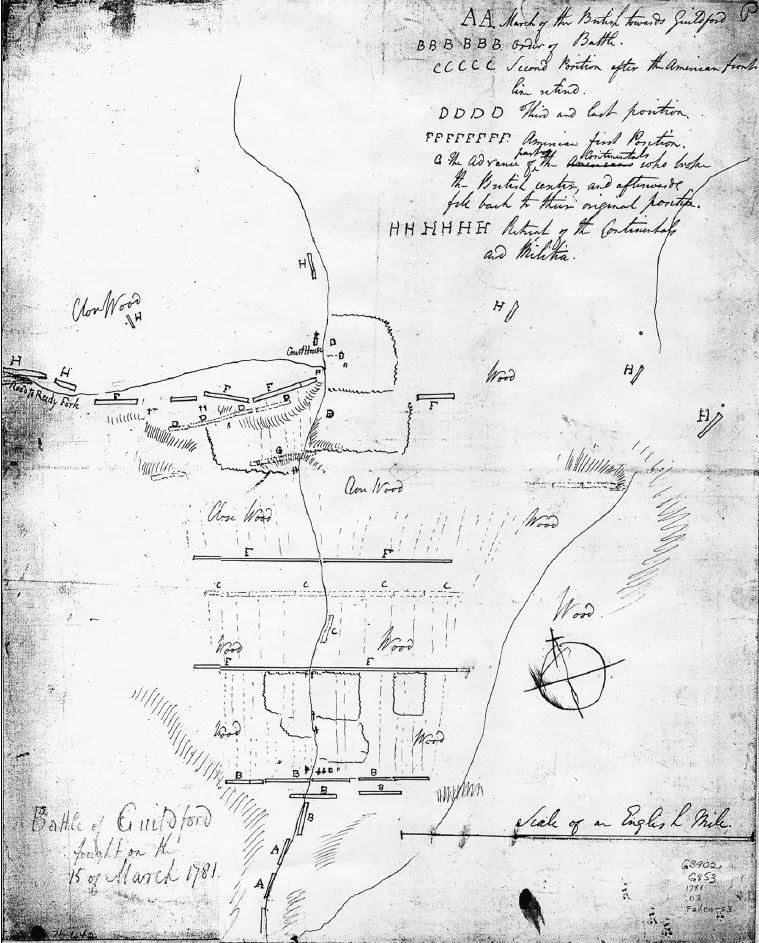 P
AA March of the British towards Guildford
BBB BBB Order of Battle.
CCCCC Second Position after the American front
line retired.
DDDD Third and last position.
FFFFFFFF American first Position.
G The Advance of part of the Americans Continentals who broke
the British center, and afterwards
fell back to their original position.
HH HHHH Retreat of the Continentals
and Militia.
H
Close Wood
H
H
Court House
D
H
H
H
Road to Reedy Fork
Wood
H
F
F
F
F
F
H
H
D
D
D
D
G
Close Wood
Close Wood
Wood
F
F
C
C
C
C
C
Wood
Wood
Wood
F
F
Wood
Wood
B
B
B
B
B
B
B
A
A
Battle of Guildford
fought on the
15 of March 1781.
Scale of an English Mile.
G3902
.G853
1781
.D3
Faden 53